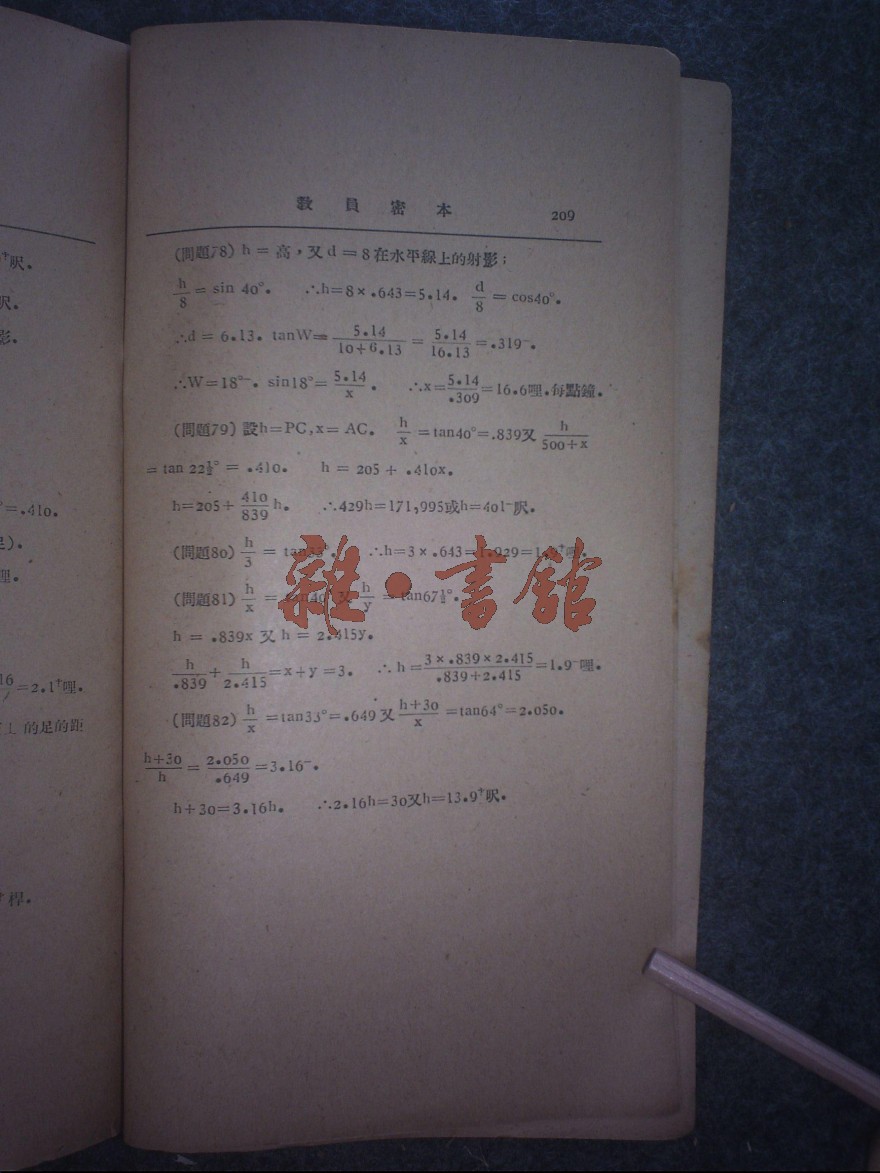 ⁺呎。
呎。
影。
°=.410。
足)。
哩。
16/7=2.1⁺哩。
的足的距
⁺桿。
教員密本 209
(問題78) h = 高,又 d = 8在水平線上的射影;
h/8 = sin 40°. ∴h=8×.643=5.14. d/8 = cos40°.
∴d = 6.13. tanW= 5.14/10+6.13 = 5.14/16.13 =.319⁻.
∴W=18°⁻. sin18°= 5.14/x. ∴x=5.14/.309=16.6哩.每點鐘.
(問題79) 設h=PC, x= AC. h/x =tan40°=.839又 h/500+x
= tan 22½° = .410. h = 205 + .410x.
h=205+ 410/839 h. ∴429h=171,995或h=401⁻呎.
(問題80) h/3 = tan33°. ∴h=3×.643=1.929=1.9⁺哩.
(問題81) h/x = tan40°又 h/y = tan67½°.
h = .839x 又 h = 2.415y.
h/.839 + h/2.415 =x+y =3. ∴h= 3×.839×2.415/.839+2.415 =1.9⁻哩.
(問題82) h/x =tan33°=.649又 h+30/x =tan64°=2.050.
h+30/h = 2.050/.649 =3.16⁻.
h+30=3.16h. ∴2.16h=30又h=13.9⁺呎.
雜·書館